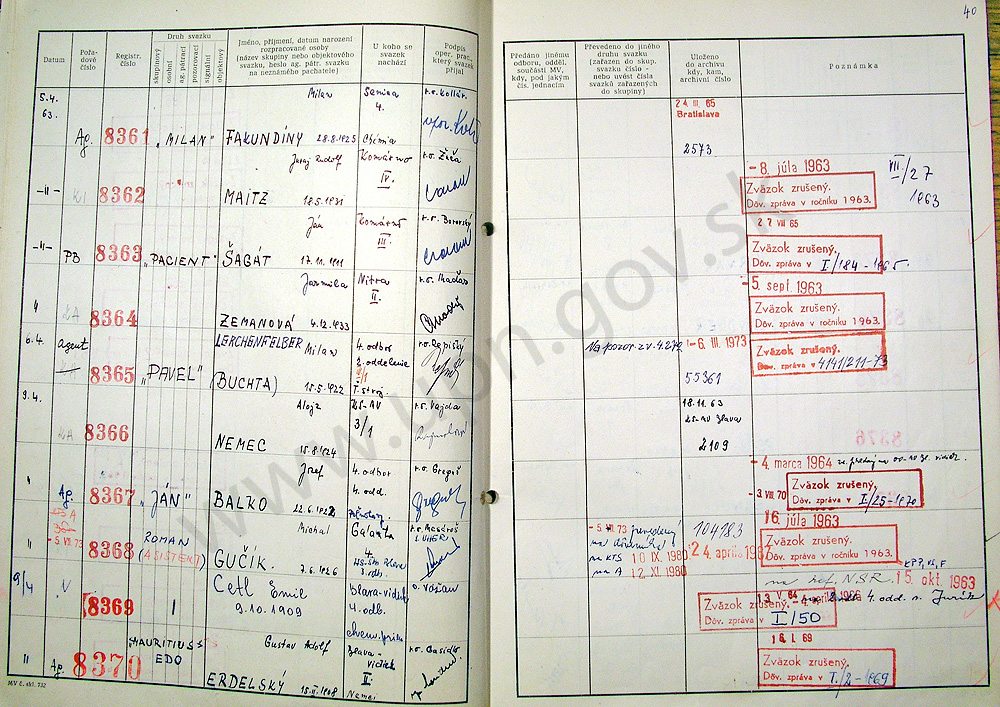 40
Datum
Pořadové číslo
Registr. číslo
Druh svazku
skupinový
osobní
ag. pátrací
pozorovací
signální
objektový
Jméno, příjmení, datum narození
rozpracované osoby
(název skupiny nebo objektového
svazku, heslo ag. pátr. svazku
na neznámého pachatele)
U koho se
svazek
nachází
Podpis
oper. prac.,
který svazek
přijal
Předáno jinému
odboru, odděl.
součásti MV,
kdy, pod jakým
čís. jednacím
Převedeno do jiného
druhu svazku
(zařazen do skup.
svazku číslo -
nebo uvést čísla
svazků zařazených
do skupiny)
Uloženo
do archivu
kdy, kam,
archivní číslo
Poznámka
5.4.
63.
Ag. 8361 „MILAN" FAKUNDÍNY Milan 28.8.1925
Senica
4.
Chémia
r.s. Kollár.
24. III. 65
Bratislava
2573
-II- KI 8362 MAITZ Juraj Rudolf
Komárno
IV.
- 8. júla 1963
Zväzok zrušený.
Dôv. zpráva v ročníku 1963.
VII/27
1963
-II- PB 8363 „PACIENT" ŠAGÁT Ján 17.11.1911
Komárno
III.
r.s. Borovský
27 VII 65
Zväzok zrušený.
Dôv. zpráva v I/184-1965.
8364 ZEMANOVÁ Jarmila 4.12.1933
Nitra
II.
- 5. sept. 1963
Zväzok zrušený.
Dôv. zpráva v ročníku 1963.
6.4. agent 8365 „PAVEL" LERCHENFELBER
(BUCHTA) Milan 15.5.1922
4. odbor
2. oddelenie
Na pozor. zv. 4.272
- 6. III. 1973
55361
Zväzok zrušený.
Dôv. zpráva v 4141/211-73
9.4. 8366 NEMEC Alojz 15.8.1924
KS-AV
3/1
r.s. Vajda
18.11.63
2109
Ag. 8367 „JÁN" BALKO Jozef 22.6.1922
4. odbor
4. odd.
r.s. Greguš
- 4. marca 1964
- 3. VIII. 70
Zväzok zrušený,
Dôv. zpráva v I/25-1970
- 5. VII. 73
8368 ROMAN
(ASISTENT) GUČÍK. Michal 7.6.1926
Galanta
- 5. VII. 73
na KTS 10 IX 1980
na A 12. XI. 1980
104783
24. apríla 1967
16. júla 1963
Zväzok zrušený.
Dôv. zpráva v
9/4 V 8369 I Cetl Emil
9.10.1909
Blava-vidiek
4. odb.
o. Vošian
15. okt. 1963
na ref. N.S.R.
13 V. 64
4. odd. n. Jurík
Zväzok zrušený.
Dôv. zpráva v I/50
II Ag. 8370 MAURITIUSS
EDO
ERDELSKÝ Gustav Adolf 15.II.1908
Blava-
vidiek
II.
Nemci
18. I. 69
Zväzok zrušený.
Dôv. zpráva v I/2-1969
MV č. skl. 732
www.upn.gov.sk